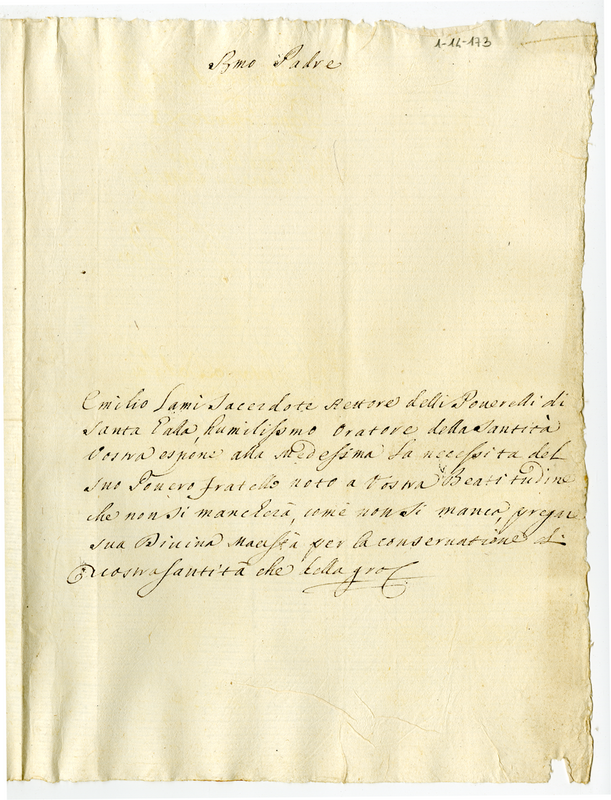 1-14-173
Bmo Padre
Emilio Lami Sacerdote Rettore delli Pouerelli di
Santa Galla, humilissmo Oratore della Santità
Vostra espone alla Medesima la necessita del
suo Pouero fratello noto a Vostra Beatitudine
che non si mancherà, come non si manca, pregare
sua Diuina Maestà per la conseruatione di
Vostra Santità che della gra